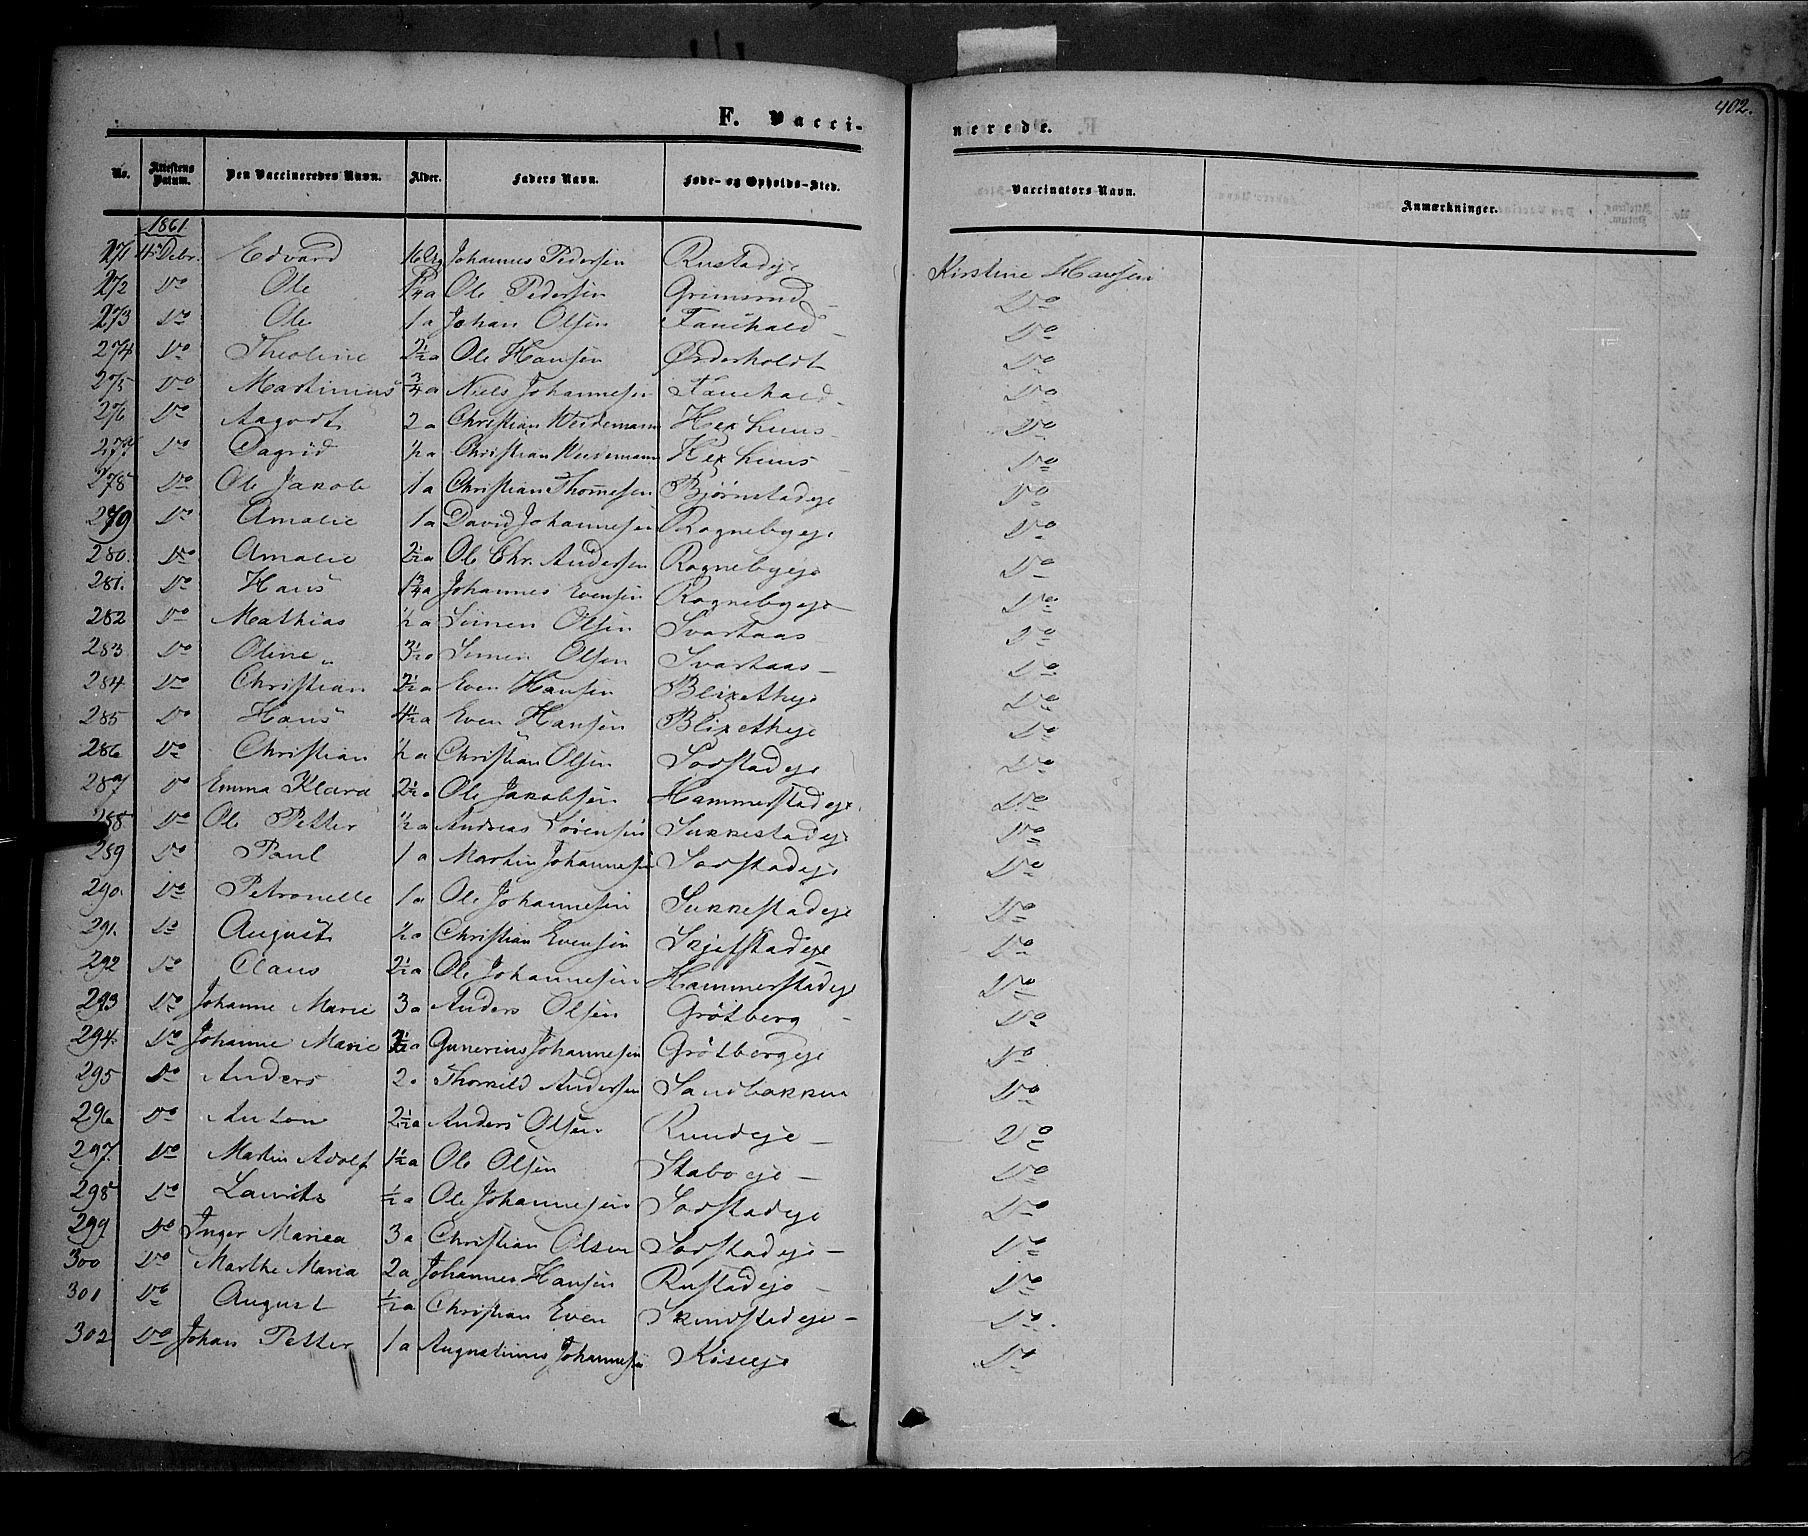 402.
F. Vacci-nerede.
No. Attestens Datum. Den Vaccineredes Navn. Alder. Faders Navn. Føde- og Opholds-Sted. Vaccinators Navn. Anmærkninger.
1861
271 4 Debr. Edvard Johannes Pedersen Rustadeje Kirstine Hansen
272 Do Ole Ole Pedersen Grimsrud Do
273 Do Ole 1 a Johan Olsen Fauchald Do
274 Do Theoline 2½ a Ole Hansen Øsderholdt Do
275 Do Martinius ¾ a Niels Johannesen Fauchald Do
276 Do Aagodt 2 a Christian Weidemann Hexhuus Do
277 Do Dagrid ½ a Christian Weidemann Hexhuus Do
278 Do Ole Jakob 1 a Christian Thomesen Bjørnstadeje Do
279 Do Amalie 1 a David Johannesen Rognebyeje Do
280. Do Amalie 2½ a Ole Chr. Andersen Rognebyeje Do
281. Do Hans 1¾ a Johannes Evensen Rognebyeje Do
282 Do Mathias ½ a Simen Olsen Svartaas Do
283 Do Oline 3½ a Simen Olsen Svartaas Do
284 Do Christian 2½ a Even Hansen Blixetheje Do
285 Do Hans 4½ a Even Hansen Blixetheje Do
286 Do Christian ½ a Christian Olsen Sorstadeje Do
287 Do Emma Klara 2½ a Ole Jakobsen Hammerstadeje Do
288 Do Ole Petter ½ a Andreas Sørensen Sukkestadeje Do
289 Do Paul 1 a Martin Johannesen Sorstadeje Do
290. Do Petronelle 1 a Ole Johannesen Sukkestadeje Do
291. Do August ½ a Christian Evensen Skjefstadeje Do
292 Do Claus 2½ a Ole Johannesen Hammerstadeje Do
293 Do Johanne Marie 3 a Anders Olsen Grötberg Do
294. Do Johanne Marie Gunerius Johannesen Grötbergeje Do
295 Do Anders 2 a Thorkild Andersen Sandbakken Do
296 Do Anton 2½ a Anders Olsen Rundeje Do
297. Do Martin Adolf 1½ a Ole Olsen Staboeje Do
298 Do Lauritz ½ a Ole Johannesen Sorstadeje Do
299 Do Inger Mariea 3 a Christian Olsen Sorstadeje Do
300 Do Marthe Maria 2 a Johannes Hansen Rustadeje Do
301 Do August ½ a Christian Even Do
302 Do Johan Petter 1 a Augnatinus Johannesen Kiseeje Do